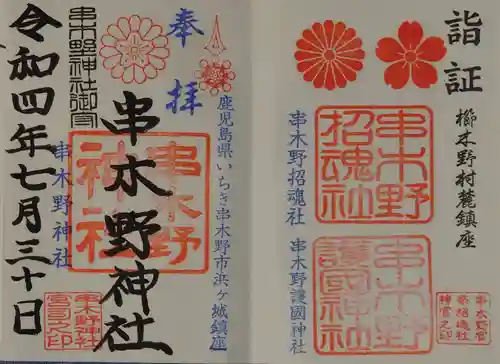 詣証
櫛木野村麓鎮座
串木野
招魂社
串木野招魂社
串木野
護國神社
串木野護國神社
串木野
神官之印
奉拝
鹿児島県いちき串木野市浜ヶ城鎮座
串木野神社
串木野
神社
串木野神社
串木野神社
宮司之印
令和四年七月三十日